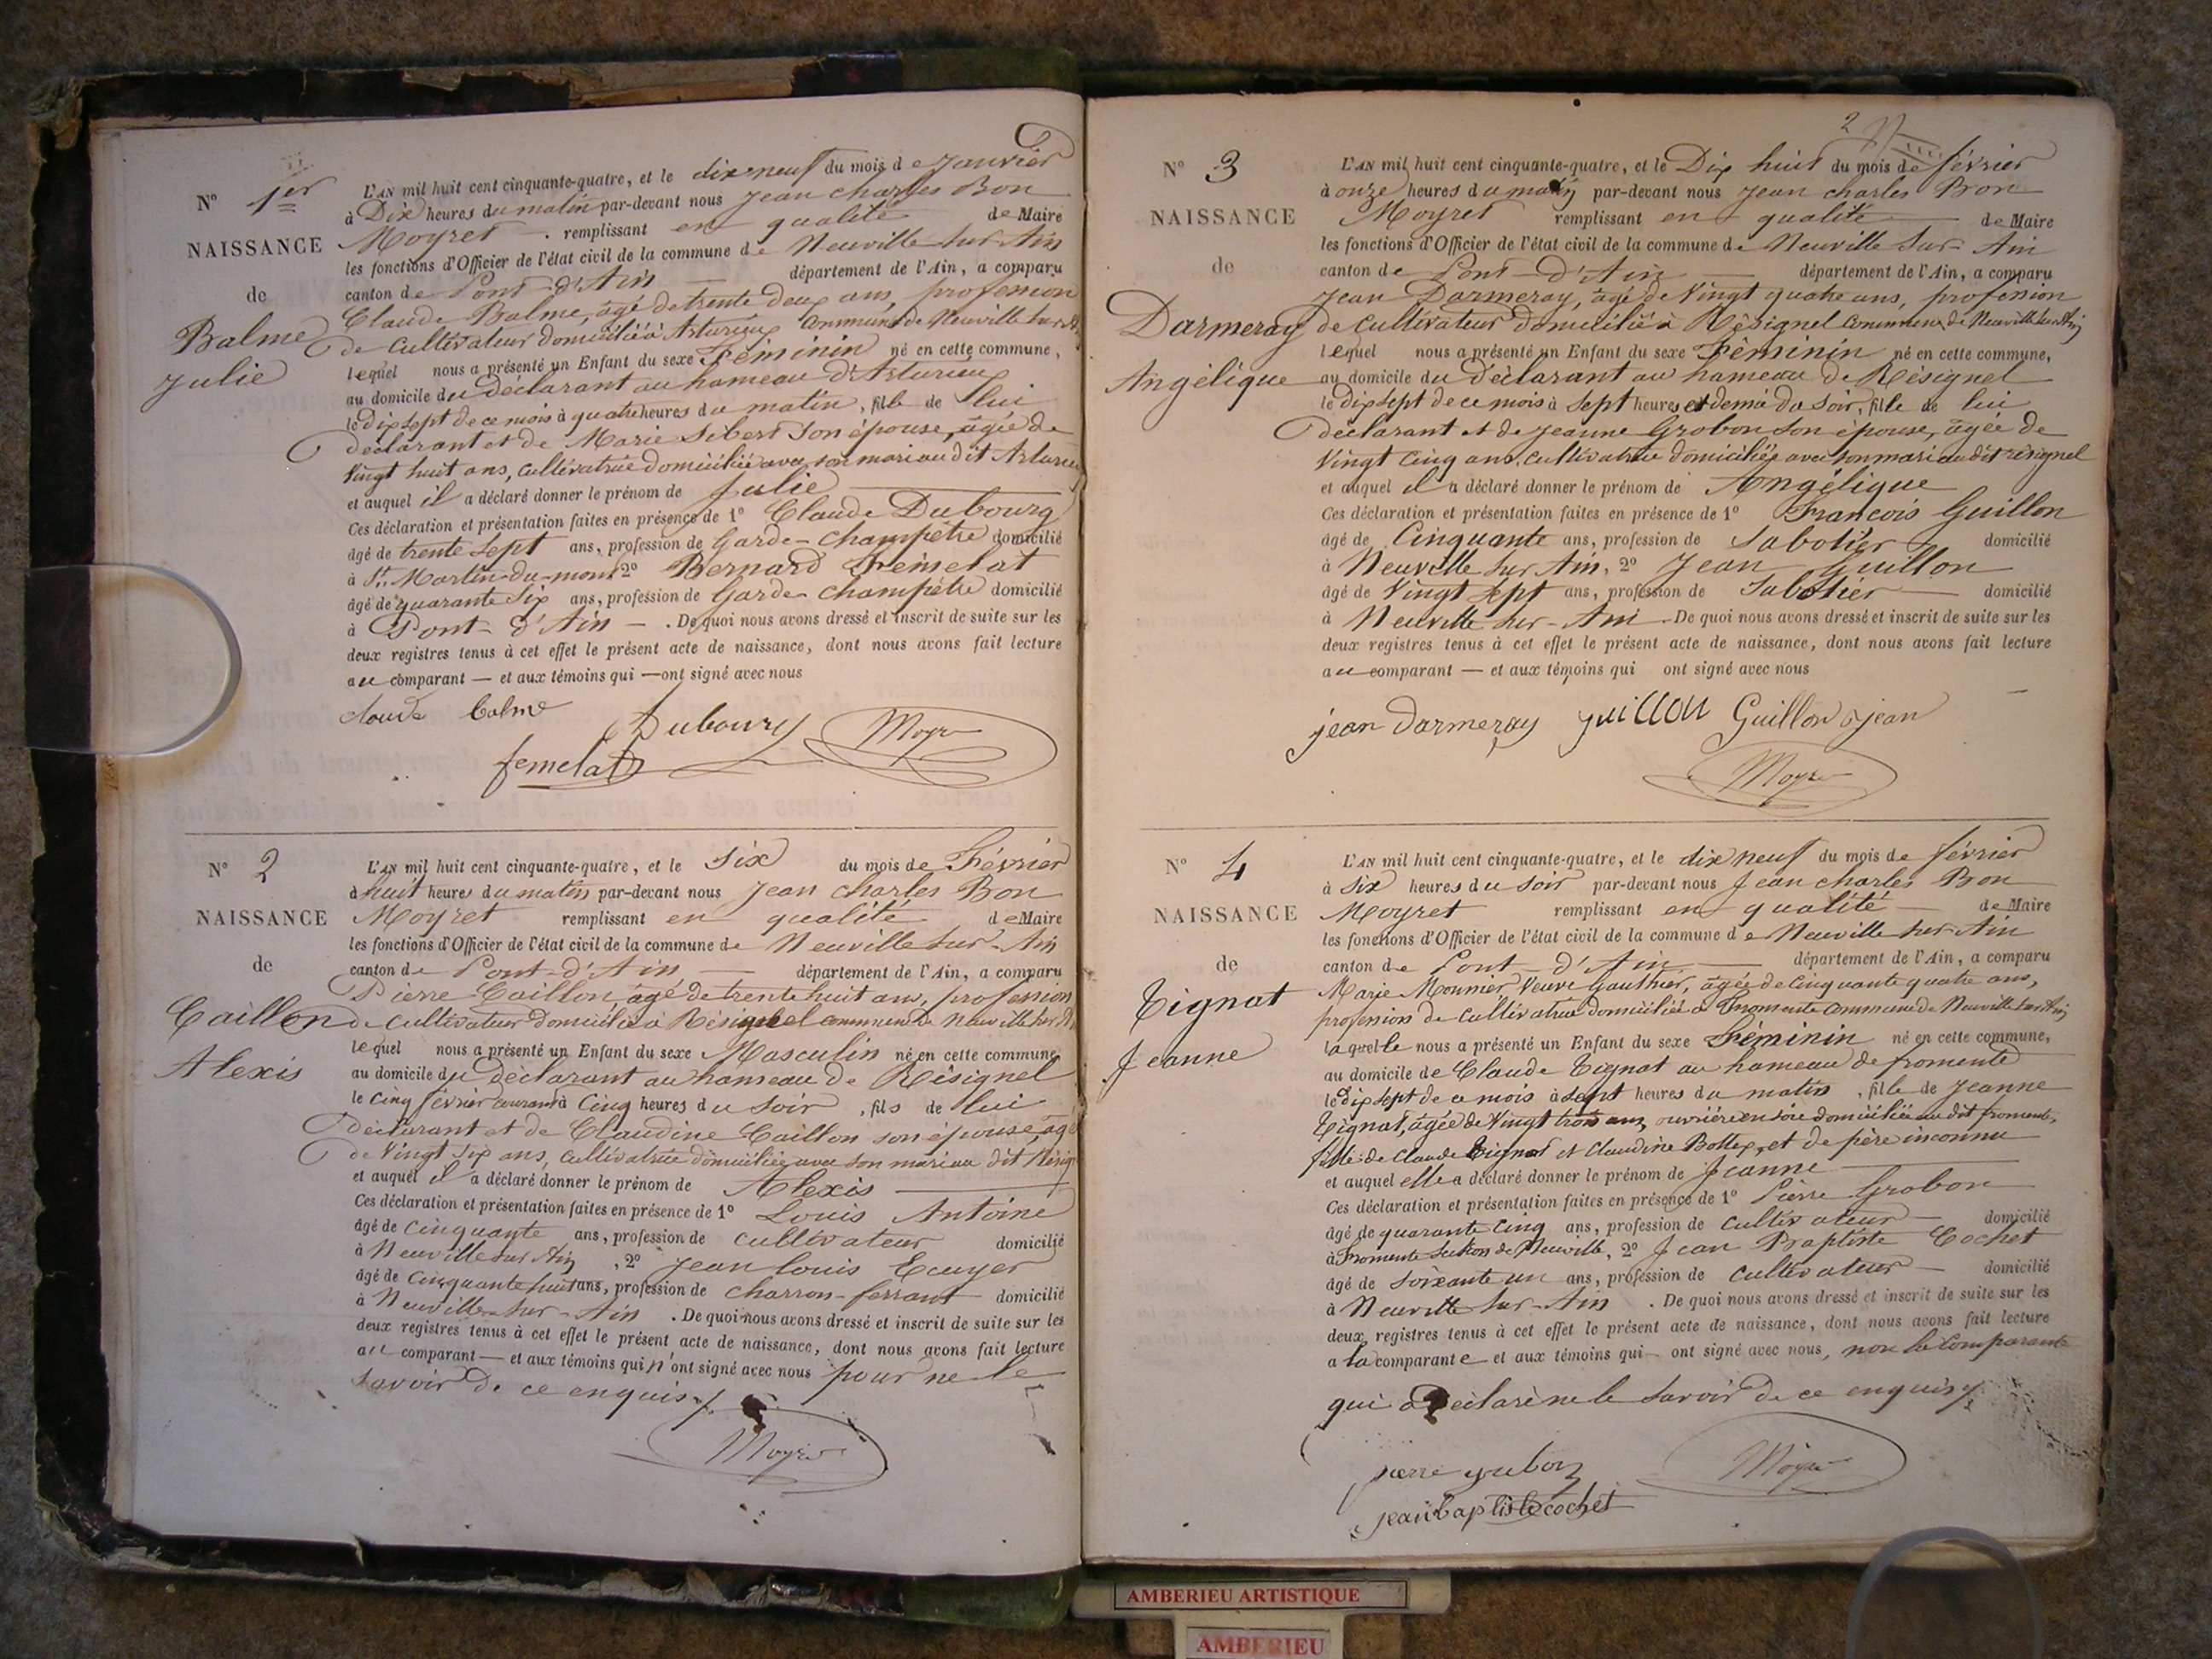 N° 1er
NAISSANCE
de
Balme
Julie
L'AN mil huit cent cinquante-quatre, et le dix-neuf du mois de Janvier
à Dix heures du matin par-devant nous Jean Charles Bon
Moyret . remplissant en qualité de Maire
les fonctions d'Officier de l'état civil de la commune de Neuville sur Ain
canton de Pont-d'Ain département de l'Ain, a comparu
Claude Balme, âgé de trente deux ans, profession
de cultivateur domicilié à commune de Neuville sur
lequel nous a présenté un Enfant du sexe Féminin né en cette commune,
au domicile du déclarant au hameau
le dix sept de ce mois à quatre heures du matin, fille de lui
déclarant et de Marie Sibert son épouse, âgée de
vingt huit ans, cultivatrice domiciliée avec son mari au dit
et auquel il a déclaré donner le prénom de Julie
Ces déclaration et présentation faites en présence de 1° Claude Dubourg
âgé de trente sept ans, profession de Garde-champêtre domicilié
à St. Martin-du-mont 2° Bernard Fémelat
âgé de quarante six ans, profession de Garde champêtre domicilié
à Pont-d'Ain — . De quoi nous avons dressé et inscrit de suite sur les
deux registres tenus à cet effet le présent acte de naissance, dont nous avons fait lecture
au comparant — et aux témoins qui — ont signé avec nous
claude balme
Dubourg Moyret
femelat
N° 2
NAISSANCE
de
Caillon
Alexis
L'AN mil huit cent cinquante-quatre, et le six du mois de Février
à huit heures du matin par-devant nous Jean Charles Bon
Moyret remplissant en qualité de Maire
les fonctions d'Officier de l'état civil de la commune de Neuville sur-Ain
canton de Pont-d'Ain — département de l'Ain, a comparu
Pierre Caillon, âgé de trente huit ans, profession
de cultivateur domicilié à Résignel commune de Neuville sur
lequel nous a présenté un Enfant du sexe Masculin né en cette commune,
au domicile du déclarant au hameau de Résignel
le cinq février courant à cinq heures du soir, fils de lui
déclarant et de Claudine Caillon son épouse, âgée
de vingt six ans, cultivatrice domiciliée avec son mari au dit
et auquel il a déclaré donner le prénom de Alexis
Ces déclaration et présentation faites en présence de 1° Louis Antoine
âgé de cinquante ans, profession de cultivateur domicilié
à Neuville sur Ain, 2° Jean Louis Ecuyer
âgé de cinquante huit ans, profession de charron-ferrant domicilié
à Neuville-sur-Ain . De quoi nous avons dressé et inscrit de suite sur les
deux registres tenus à cet effet le présent acte de naissance, dont nous avons fait lecture
au comparant — et aux témoins qui n'ont signé avec nous pour ne le
savoir de ce enquis
Moyret
2
N° 3
NAISSANCE
de
Darmeray
Angélique
L'AN mil huit cent cinquante-quatre, et le Dix huit du mois de février
à onze heures du matin par-devant nous Jean Charles Bon
Moyret remplissant en qualité de Maire
les fonctions d'Officier de l'état civil de la commune de Neuville sur-Ain
canton de Pont-d'Ain — département de l'Ain, a comparu
Jean Darmeray, âgé de vingt quatre ans, profession
de cultivateur domicilié à Résignel commune de Neuville sur Ain
lequel nous a présenté un Enfant du sexe Féminin né en cette commune,
au domicile du déclarant au hameau de Résignel
le dix sept de ce mois à sept heures et demi du soir, fille de lui
déclarant et de Jeanne Grobon son épouse, âgée de
vingt cinq ans, cultivatrice domiciliée avec son mari au dit résignel
et auquel il a déclaré donner le prénom de Angélique
Ces déclaration et présentation faites en présence de 1° François Guillon
âgé de Cinquante ans, profession de Sabotier domicilié
à Neuville sur Ain, 2° Jean Guillon
âgé de vingt sept ans, profession de Sabotier domicilié
à Neuville sur-Ain . De quoi nous avons dressé et inscrit de suite sur les
deux registres tenus à cet effet le présent acte de naissance, dont nous avons fait lecture
au comparant — et aux témoins qui ont signé avec nous
jean Darmeray guillon Guillon jean
Moyret
N° 4
NAISSANCE
de
Tignat
Jeanne
L'AN mil huit cent cinquante-quatre, et le dix neuf du mois de février
à six heures du soir par-devant nous Jean Charles Bon
Moyret remplissant en qualité — de Maire
les fonctions d'Officier de l'état civil de la commune de Neuville sur-Ain
canton de Pont-d'Ain — département de l'Ain, a comparu
Marie Monnier veuve Gauthier, âgée de cinquante quatre ans,
profession de cultivatrice domiciliée à fromente commune de Neuville sur Ain
laquelle nous a présenté un Enfant du sexe Féminin né en cette commune,
au domicile de Claude Tignat au hameau de fromente
le dix sept de ce mois à sept heures du matin, fille de Jeanne
Tignat, âgée de vingt trois ans, ouvrière en soie domiciliée au dit fromente,
fille de Claude Tignat et Claudine Bollex, et de père inconnu
et auquel elle a déclaré donner le prénom de Jeanne
Ces déclaration et présentation faites en présence de 1° Pierre Grobon
âgé de quarante cinq ans, profession de cultivateur domicilié
à Fromente section de Neuville, 2° Jean Baptiste Cochet
âgé de soixante un ans, profession de cultivateur domicilié
à Neuville sur-Ain . De quoi nous avons dressé et inscrit de suite sur les
deux registres tenus à cet effet le présent acte de naissance, dont nous avons fait lecture
a la comparante et aux témoins qui — ont signé avec nous, non la comparante
qui a déclaré ne le savoir de ce enquis
pierre grobon Moyret
jean baptiste cochet
AMBERIEU ARTISTIQUE
AMBERIEU